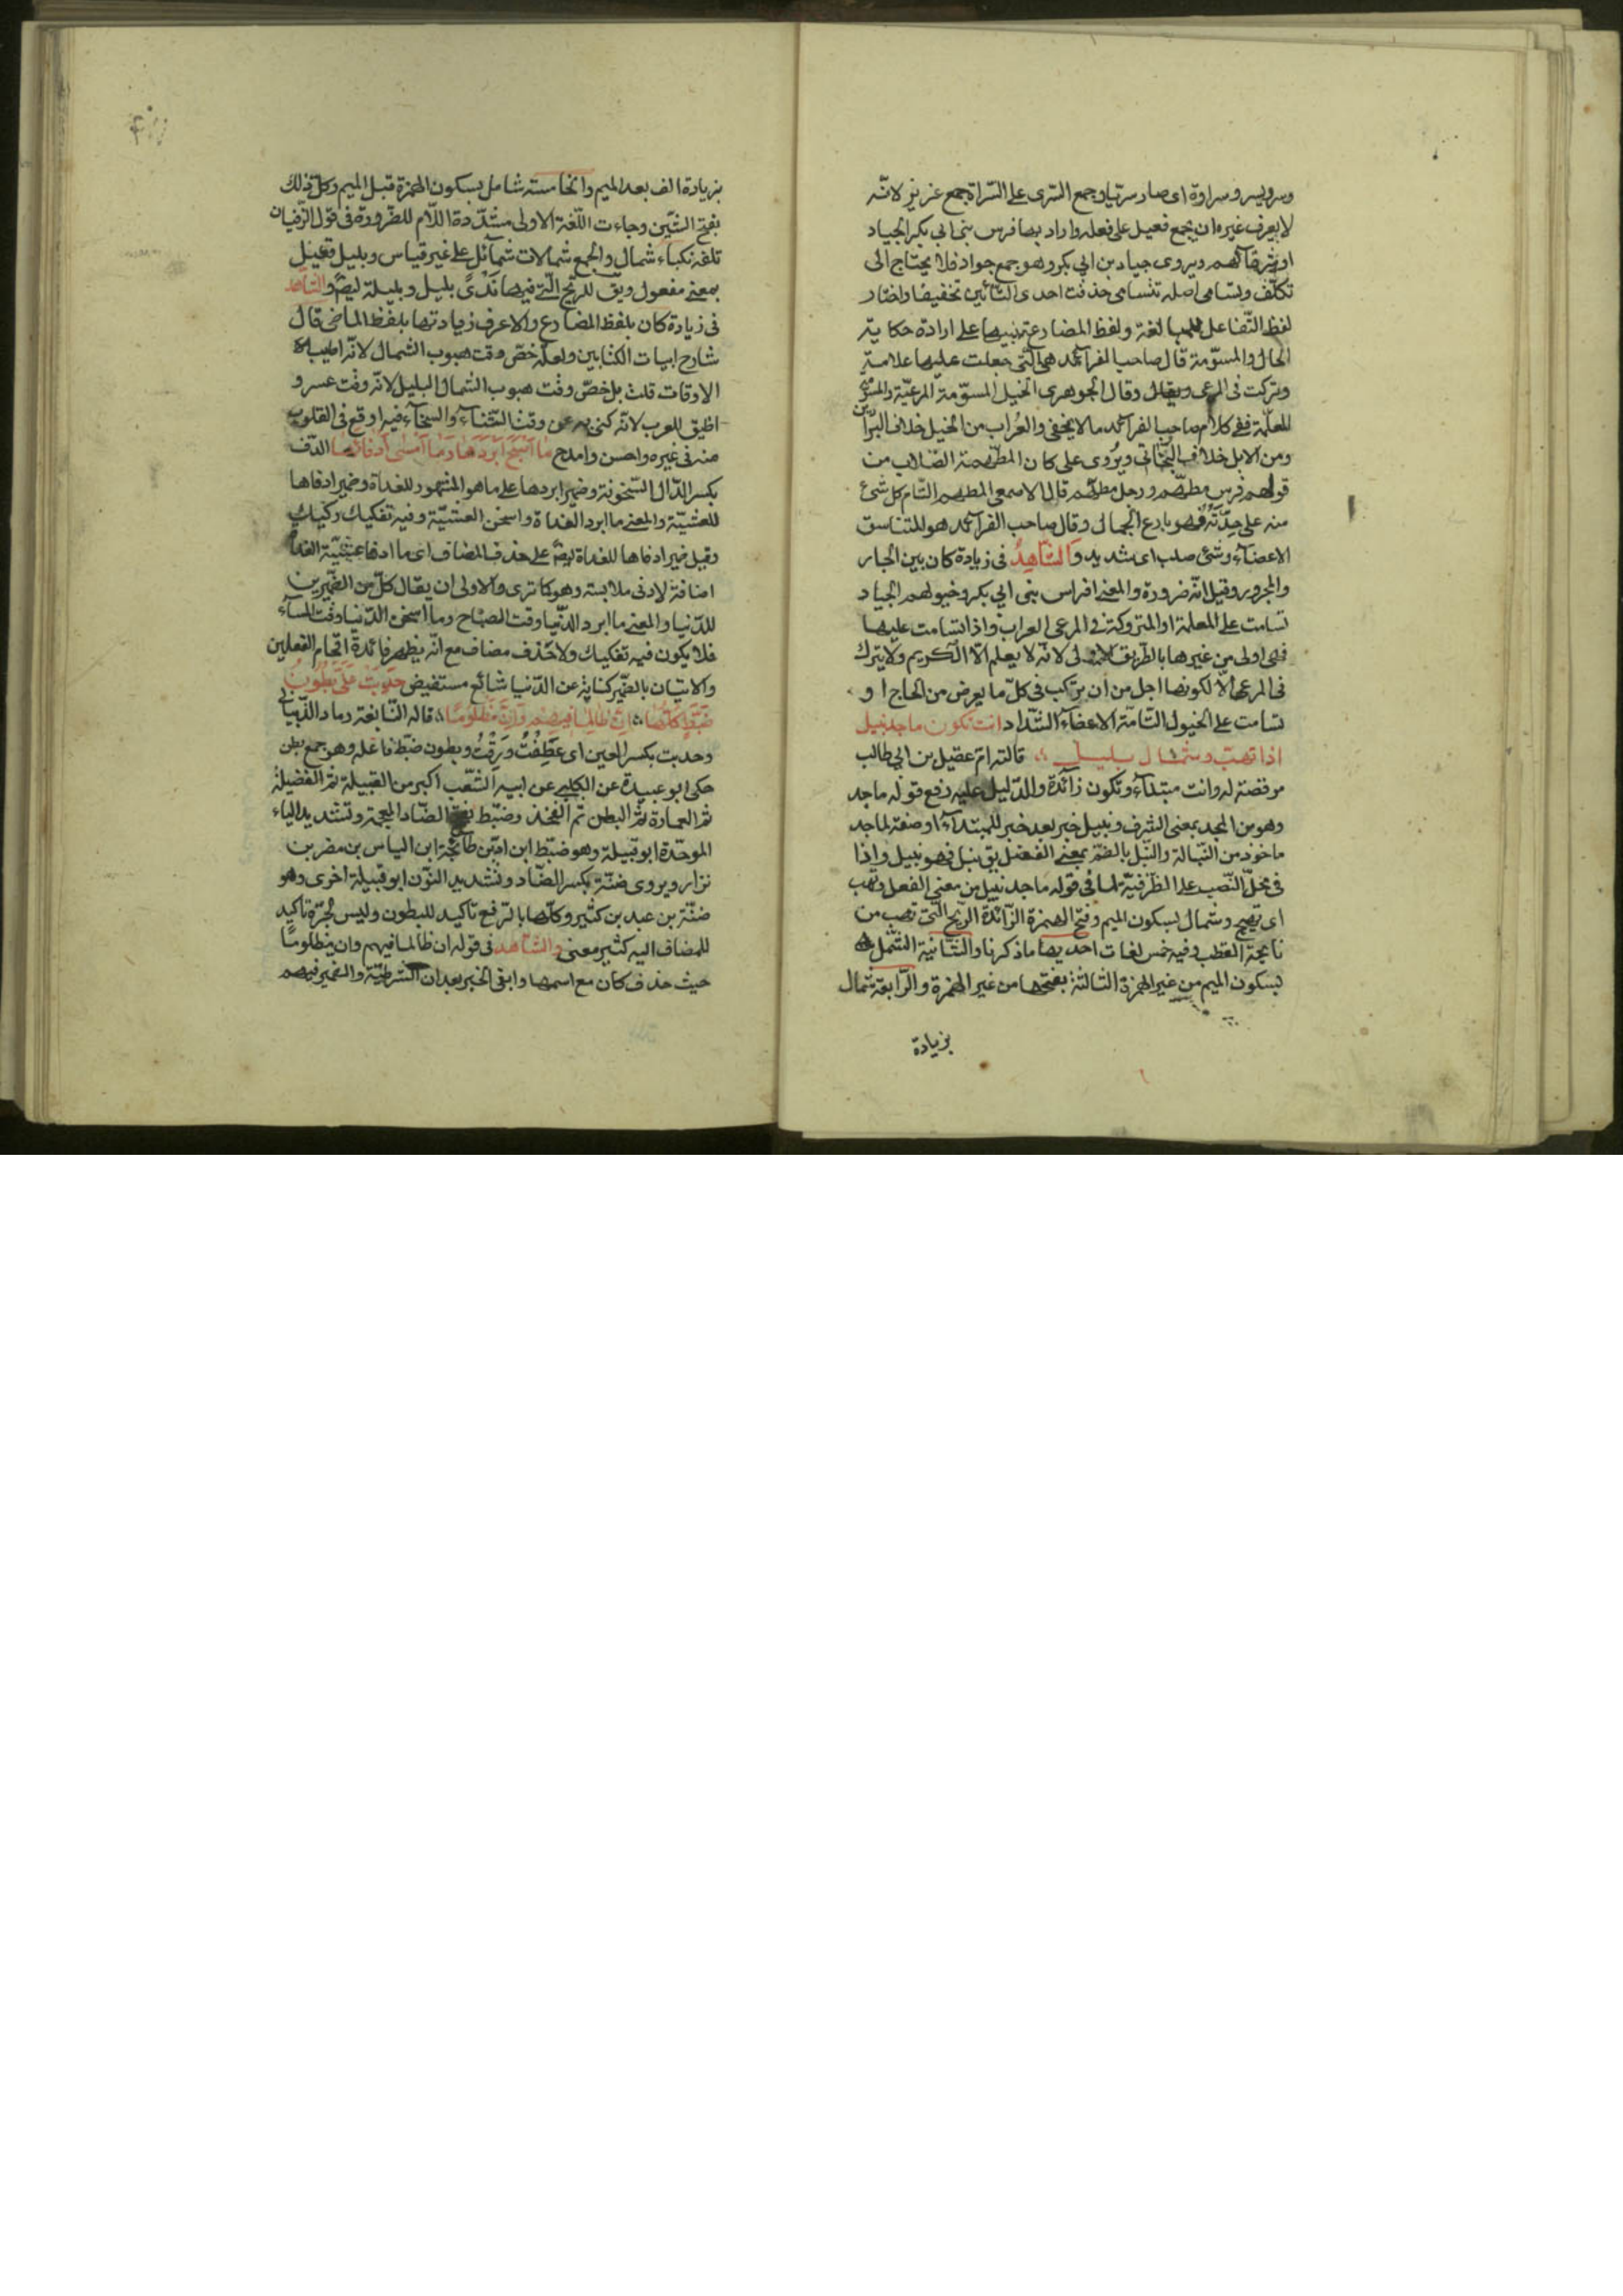 وسرو يسرو سراوة اى صار سريا وجمع السّرى على السّراة جمع عزيز لانّه
لا يعرف غيره ان يجمع فعيل على فعلة واراد بها فرس بنى ابى بكر الجياد
او شرفائهم ويروى جياد بن ابي بكر وهو جمع جواد فلا يحتاج الى
تكلّف وتسامى اصله تتسامى حذفت احدى التّائين تخفيفا واختار
لفظ التّفاعل للمبالغة ولفظ المضارع تنبيها على ارادة حكاية
الحال والمسوّمة قال صاحب الفرآئد هى الّتى جعلت عليها علامة
وتركت فى المرعى وقال الجوهرى الخيل المسوّمة المرعيّة والمسوّمة
المعلّمة ففى كلام صاحب الفرآئد ما لا يخفى والعُراب من الخيل خلاف البرّاذين
ومن الابل خلاف البخّاتى ويُروى على كان المطهّمة الصّلاب من
قولهم فرس مطهّم ورجل مطهّم قال الاصمعى المطهم التّام كل شئ
منه على حِدَته فهو بارع الجمال وقال صاحب الفرآئد هو المتناسق
الاعضآء وشئ صلب اى شديد والشّاهِدُ فى زيادة كان بين الجار
والمجرور وقيل انّه ضرورة والمعنى افراس بنى ابي بكر وخيولهم الجياد
تسامت على المعلمة او المتروكة فى المرعى العراب واذا تسامت عليها
فهى اولى من غيرها بالطّريق الاولى لانّه لا يعلم الّا الكريم ولا يترك
فى المرعى الّا لكونها اجل من ان يركب فى كلّ ما يعرض من الحاج او
تسامت على الخيول التّامّة الاعضآء الشّداد انت تكون ماجد نبيل
اذا تهبّ وشمال بليل قالته امّ عقيل بن ابي طالب
مرقصة له وانت مبتدآء وتكون زآئدة والدّليل عليه رفع قوله ماجد
وهو من المجد بمعنى الشرف ونبيل خبر بعد خبر للمبتدآء او صفة لماجد
ماخوذ من النّبالة والنّبل بالضّم بمعنى الفضل يق نبل فهو نبيل واذا
فى محلّ النّصب على الظّرفيّة لما فى قوله ماجد نبيل من معنى الفعل وتهب
اى تهيج وشمال بسكون الميم وفتح الهمزة الزّآئدة الرّيح الّتى تهب من
ناحية القطب وفيه خمس لغات احديها ما ذكرنا والثّانية الشّمل
بسكون الميم من غير الهمزة الثالثة بفتحها من غير الهمزة والرّابعة شمال
بزيادة
بزيادة الف بعد الميم والخامسة شامل بسكون الهمزة قبل الميم وكل ذلك
بفتح الشّين وجاءت اللّغة الاولى مشدّدة اللّام للضّرورة فى قول الزّفيان
تلفه نكباء شمال والجمع شمالات شمآئل على غير قياس وبليل فعيل
بمعنى مفعول ويق للريح الّتى فيها نَدًى بليل وبليلة ايضً والشاهد
فى زيادة كان بلفظ المضارع والاعرف زيادتها بلفظ الماضى قال
شارح ابيات الكتابين ولعلّه خصّ وقت هبوب الشمال لانّه اطيب
الاوقات قلت بل خصّ وقت هبوب الشمال البليل لانّه وقت عسر و
اظيق للعرب لانّه كنى به عن وقت الشّتآء والسخآء فيه اوقع فى القلوب
منه فى غيره واحسن وامدح ما اَصْبَحَ اَبْرَدَهَا وَمَا اَمْسٰى اَدْفَاَهَا الدّف
بكسر الدّال السّخونة وضمير ابردها على ما هو المشهور للغداة وضمير ادفاها
للعشيّة والمعنى ما ابرد الغداة واسخن العشيّة وفيه تفكيك ركيك
وقيل ضمير ادفاها للغداة ايضً على حذف المضاف اى ما ادفا عشيّة الغداة
اضافة لادنى ملابسة وهو كما ترى والاولى ان يقال كلّ من الضّميرين
للدّنيا والمعنى ما ابرد الدّنيا وقت الصباح وما اسخن الدّنيا وقت المسآء
فلا يكون فيه تفكيك ولا حذف مضاف مع انّه يظهر فائدة اقحام الفعلين
والاتيان بالضّمير كناية عن الدّنيا شائع مستفيض حَدِبَتْ عَلَىَّ بُطُونُ
ضَبَّةَ كُلُّهَا اِنْ ظَالِمًا فِيهِمْ وَاِنْ مَظْلُومًا قاله النّابغة الذّبيانى
وحدبت بكسر العين اى عَطِفَتْ وَرَقَّتْ وبطون ضبّة فاعله وهو جمع بطن
حكى ابو عبيدة عن الكلبى عن ابيه الشّعب اكبر من القبيلة ثم الفضيلة
ثم العمارة ثم البطن ثم الفخذ وضبّة بفتح الضّاد المعجمة وتشديد الباء
الموحّدة ابو قبيلة وهو ضبّة ابن ادّ بن طابخة ابن الياس بن مضر بن
نزار ويروى ضنّة بكسر الضّاد وتشديد النّون ابو قبيلة اخرى وهو
ضنّة بن عبد بن كثير وكلّها بالرّفع تاكيد للبطون وليس لجرّه تاكيد
للمضاف اليه كثير معنى والشّاهد فى قوله ان ظالما فيهم وان مظلومًا
حيث حذف كان مع اسمها وابقى الخبر بعد ان الشرطيّة والضمير فيهم